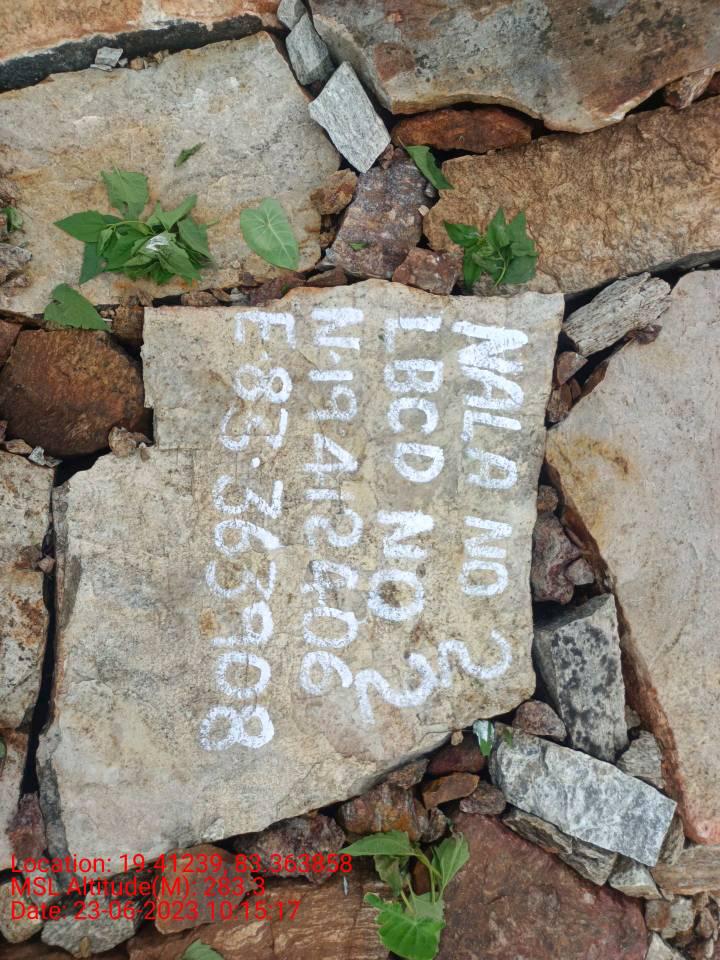 NALA NO 2
LBCD NO 2
N.19.412406
E.83.363908
Location: 19.41239, 83.363858
MSL Altitude(M): 283.3
Date: 23-06-2023 10:15:17